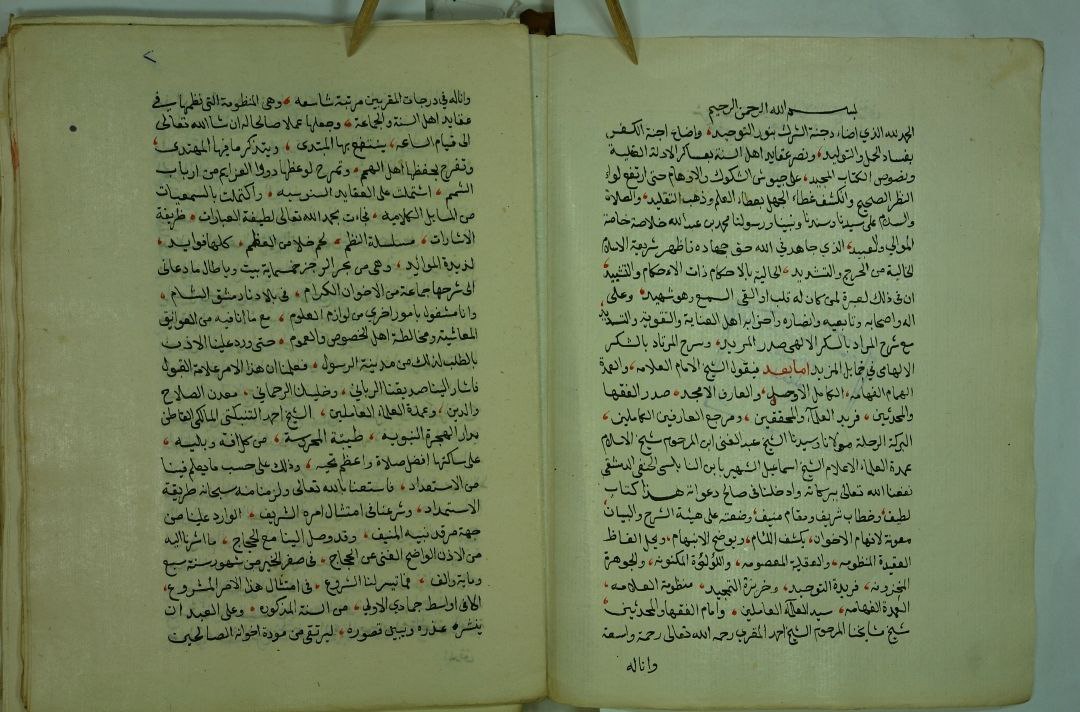 بسم الله الرحمن الرحيم
الحمد لله الذي اضاء دجنة الشرك بنور التوحيد، واضاح اجنة الكفر
بفساد الحل والتوليد، ونصر عقايد اهل السنة بعساكر الادلة العقلية
ونصوص الكتاب المجيد، على جيوش الشكوك والاوهام حتى ارتفع لواء
النظر الصحيح وانكشف غطاء الجهل بعطاء العلم وذهب التقليد، والصلاة
والسلام على سيدنا وسندنا ونبينا ورسولنا محمد بن عبد الله خلاصة خاصة
الموالي والعبيد، الذي جاهد في الله حق جهاده ناظهر شريعة الاسلام
الخالية من الحرج والتشديد، الحالية بالاحكام ذات الاحكام والتشييد
ان في ذلك لعبرة لمن كان له قلب او القى السمع وهو شهيد، وعلى
اله واصحابه وتابعيه وانصاره واحزابه اهل العناية والتقوية والتسديد
مع شرح المراد بالسكر الالهي صدر المريد، وسرح المرتاد بالشكر
الالهامي في خمايل المزيد اما بعد فيقول الشيخ الامام العلامه، والعمدة
الهمام الفهامه، الكامل الاوحد، والعارف الامجد، صدر الفقها
والمحدثين، فريد العلماء والمحققين، ومرجع العارفين الكاملين،
البركة الرحلة مولانا وسيدنا الشيخ عبد الغني ابن المرحوم شيخ الاسلام
عمدة العلماء الاعلام الشيخ اسماعيل الشهير بابن النابلسي الحنفي الدمشقي
نفعنا الله تعالى ببركاته وادخلنا في صالح دعواته هذا كتاب
لطيف، وخطاب شريف، ومقام منيف، وضعته على هيئة الشرح والبيان
معونة لافهام الاخوان، يكشف اللثام، ويوضح الابهام، ويحل الفاظ
العقيدة المنظومه، والعقيلة المعصومه، واللؤلؤة المكنونه، والجوهرة
المخزونه، فريدة التوحيد، وخريزة التمجيد، منظومة العلامه،
العمدة الفهامه، سيد العلماء العاملين، وامام الفقها والمحدثين،
شيخ مشايخنا المرحوم الشيخ احمد المقري رحمه الله تعالى رحمة واسعة
واناله
واناله في درجات المقربين مرتبة شاسعه، وهي المنظومة التي نظمها في
عقايد اهل السنة والجماعة، وجعلها عملا صالحا له ان شاء الله تعالى
الى قيام الساعه، ينتفع بها المبتدي، ويتذكر ما فيها المهتدي،
وتفرح بحفظها اهل الهمم، وتمرح لوعظها ذووا العزايم من ارباب
الشمم، اشتملت على العقايد السنوسيه، واكتملت بالسمعيات
من المسايل الكلاميه، فجاءت بحمد الله تعالى لطيفة العبارات، ظريفة
الاشارات، مسلسلة النظم، لحم خلا من العظم، كلها فوايد،
لذيذة الموايد، وهي من بحر الرجز خمسماية بيت وباطال ما دعاني
الى شرحها جماعة من الاخوان الكرام، في بلادنا دمشق الشام،
وانا مشغول بامور اخرى من لوازم العلوم، مع ما انا فيه من العوايق
المعاشية ومخالطة اهل الخصوص والعموم، حتى ورد علينا الاذن
بالطلب لذلك من مدينة الرسول، فعلمنا ان هذا الامر علامة القبول
فاشار الينا صديقنا الرباني، وخليلنا الرحماني، معدن الصلاح
والدين، وعمدة العلماء العاملين، الشيخ احمد التنبكتي المالكي القاطن
بدار الهجرة النبويه، طيبة المحروسة، من كل افة وبليه،
على ساكنها افضل صلاة واعظم تحيه، وذلك على حسب ما يعلم فينا
من الاستعداد، فاستعنا بالله تعالى ولزمنا منه سبحانه طريقة
الاستمداد، وشرعنا في امتثال امره الشريف، الوارد علينا من
جهة مرقد نبيه المنيف، وقد وصل الينا مع الحجاج، ما اشرنا اليه
من الاذن الواضح الغني عن الحجاج، في صفر الخير من شهور سنة سبع
وماية والف، فما تيسر لنا الشروع، في امتثال هذا الامر المشروع،
الا في اواسط جمادي الاولى، من السنة المذكوره، وعلى العبد ان
ينشره عذره ويبين قصوره، ليرتقي من مودة اخوانه الصالحين